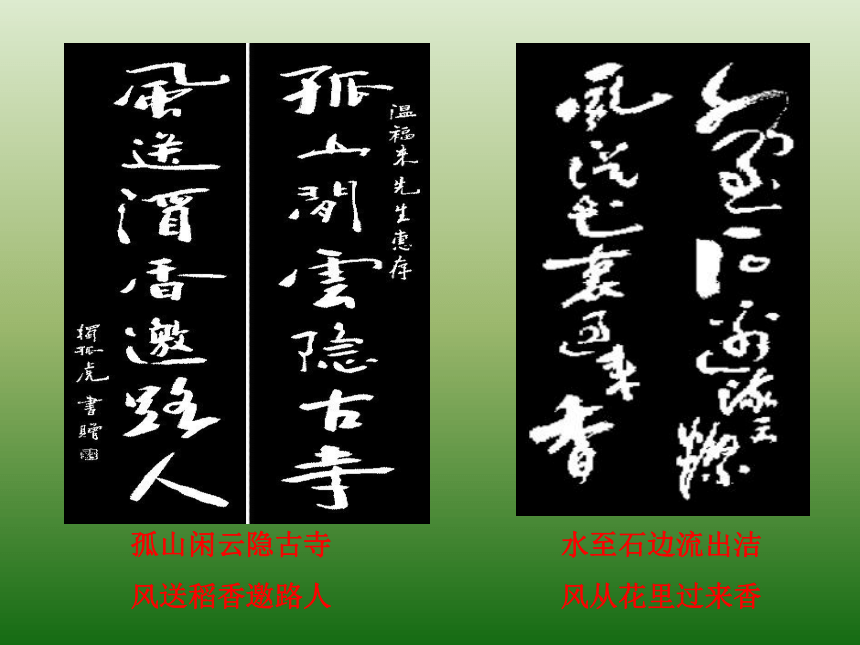 温福来先生惠存
孤山閒雲隐古寺
風送香邀路人
獨孤虎書贈
水至石邊流出潔
風從花裏過来香
孤山闲云隐古寺
风送稻香邀路人
水至石边流出洁
风从花里过来香